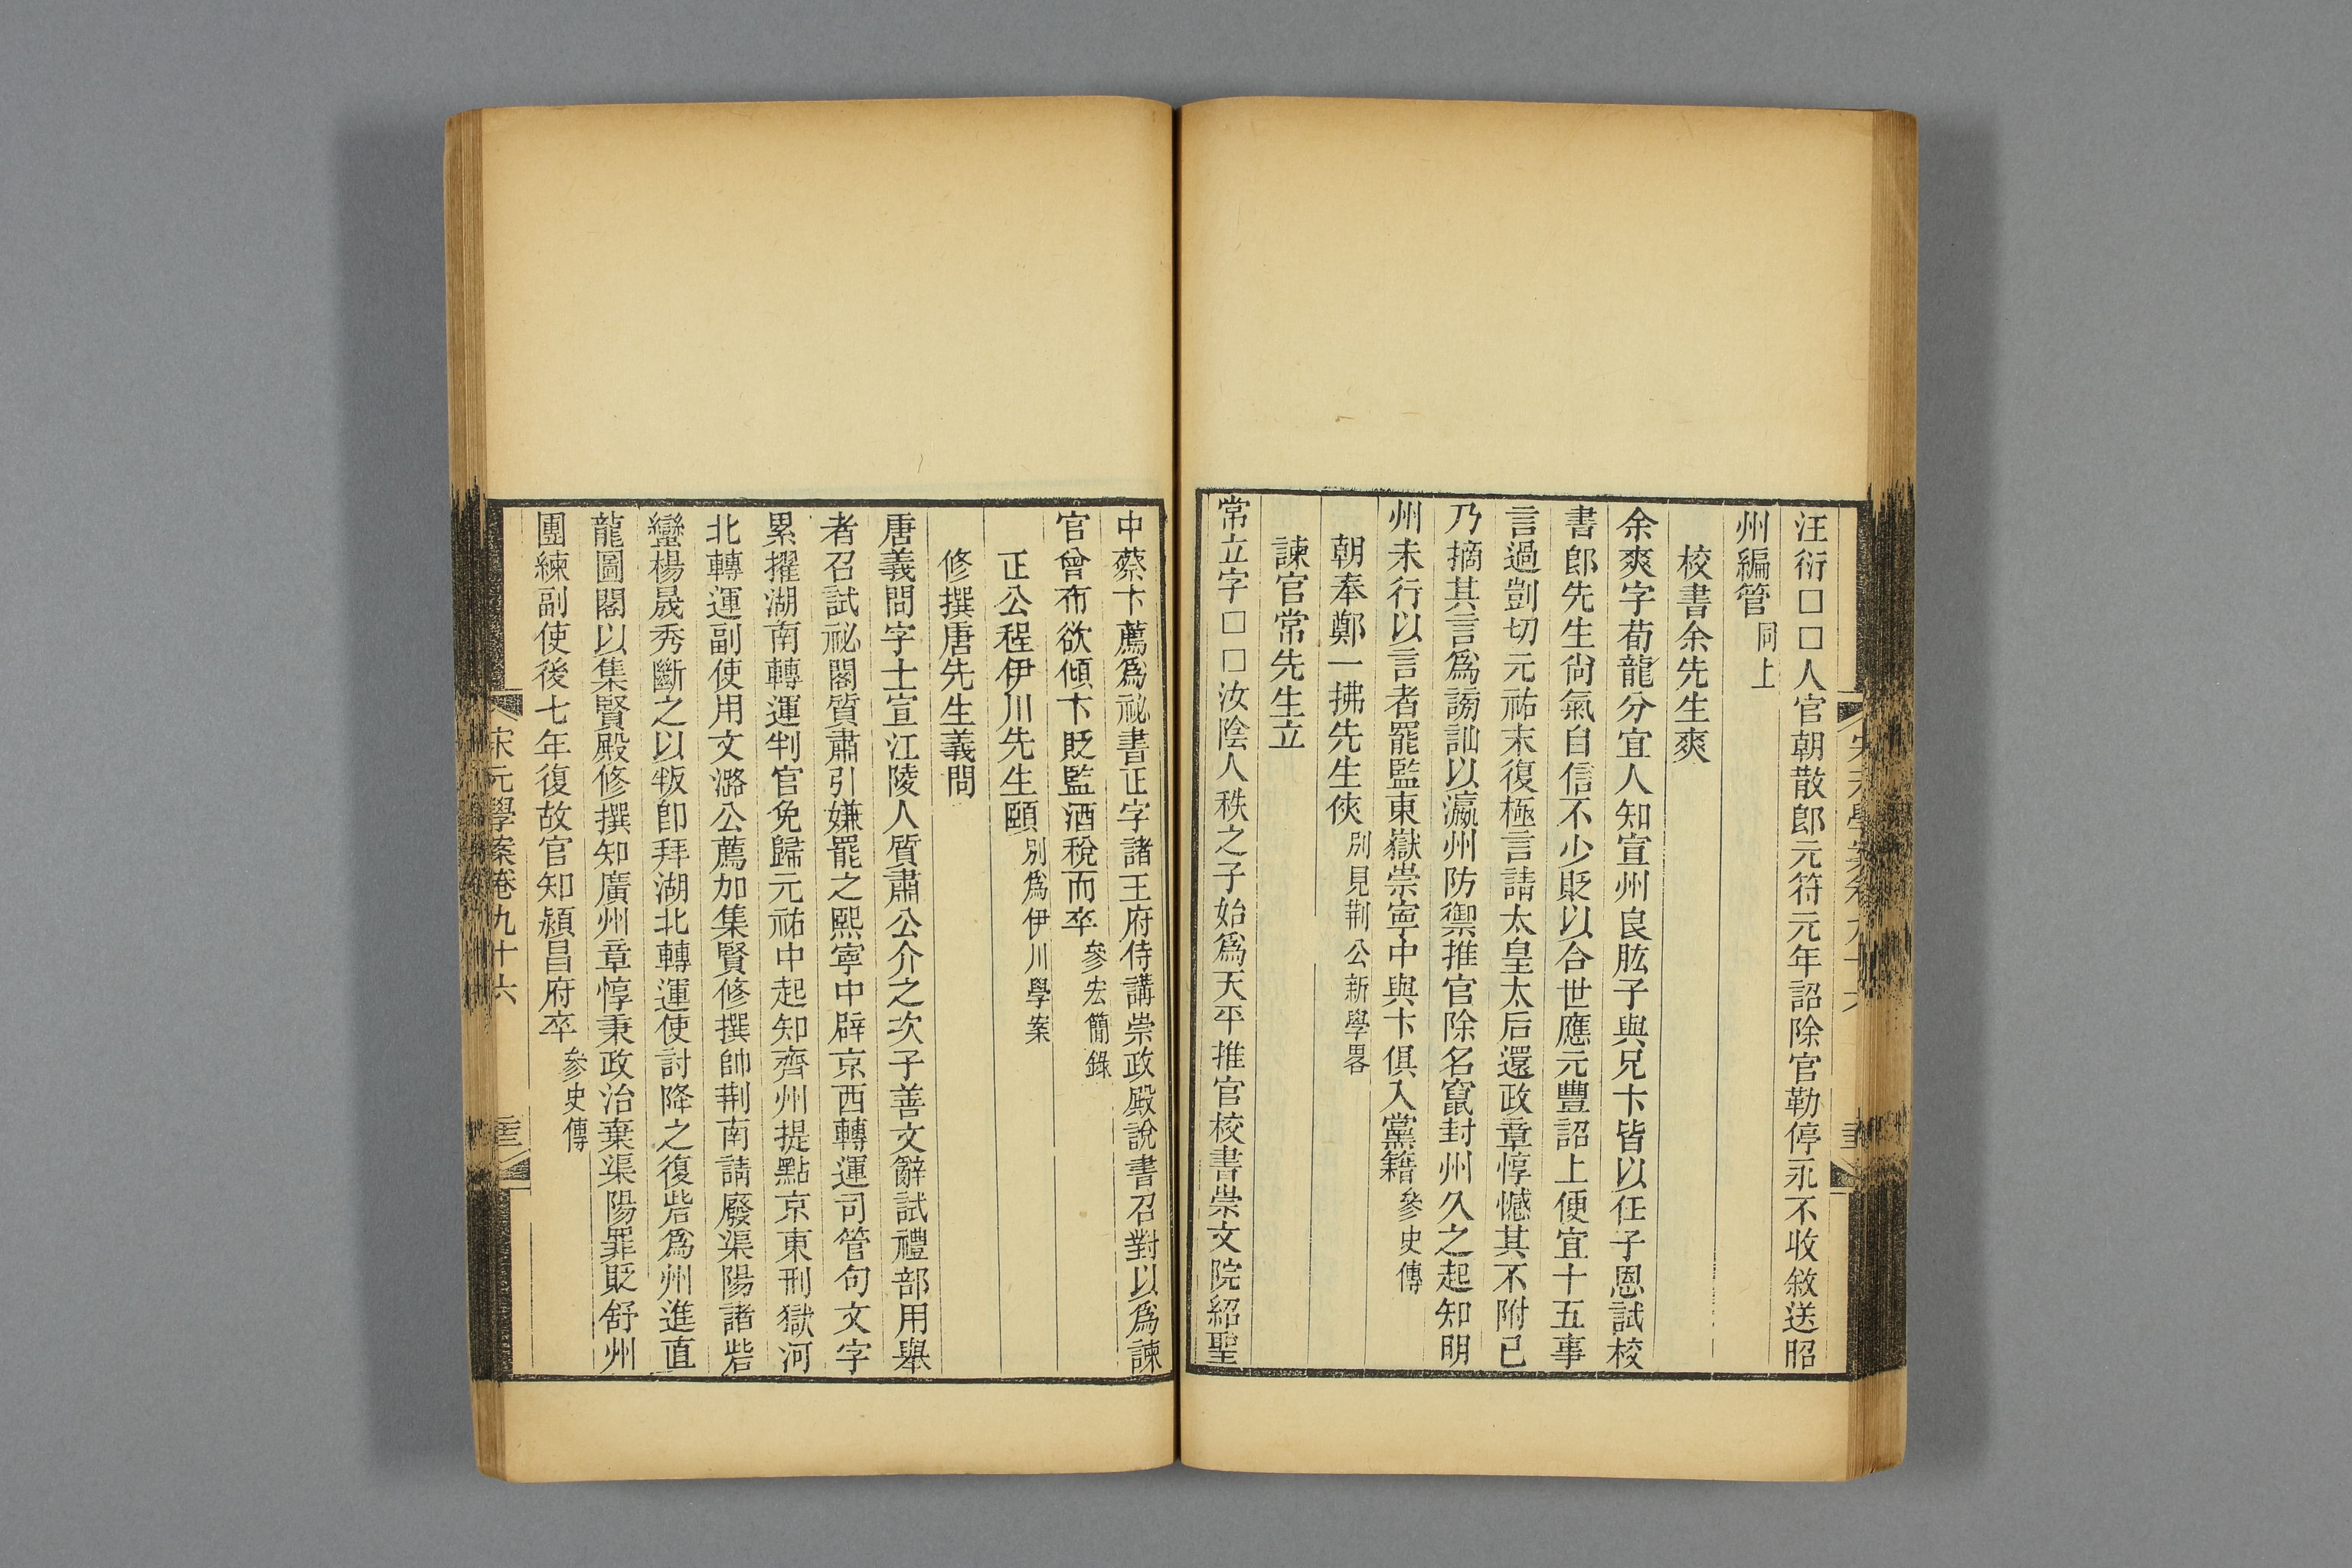 汪衍□□人官朝散郎元符元年詔除官勒停永不收敘送昭
州編管同上
校書余先生爽
余爽字荀龍分宜人知宣州良肱子與兄卞皆以任子恩試校
書郎先生尙氣自信不少貶以合世應元豐詔上便宜十五事
言過剴切元祐末復極言請太皇太后還政章惇憾其不附已
乃摘其言爲謗訕以瀛州防禦推官除名竄封州久之起知明
州未行以言者罷監東嶽崇寧中與卞俱入黨籍參史傳
朝奉鄭一拂先生俠別見荆公新學畧
諫官常先生立
常立字□□汝陰人秩之子始爲天平推官校書崇文院紹聖
中蔡卞薦爲祕書正字諸王府侍講崇政殿說書召對以爲諫
官曾布欲傾卞貶監酒稅而卒參宏簡錄
正公程伊川先生頤別爲伊川學案
修撰唐先生義問
唐義問字士宣江陵人質肅公介之次子善文辭試禮部用舉
者召試祕閣質肅引嫌罷之熙寧中辟京西轉運司管句文字
累擢湖南轉運判官免歸元祐中起知齊州提點京東刑獄河
北轉運副使用文潞公薦加集賢修撰帥荆南請廢渠陽諸砦
蠻楊晟秀斷之以叛卽拜湖北轉運使討降之復砦爲州進直
龍圖閣以集賢殿修撰知廣州章惇秉政治棄渠陽罪貶舒州
團練副使後七年復故官知潁昌府卒參史傳
宋元學案卷九十六